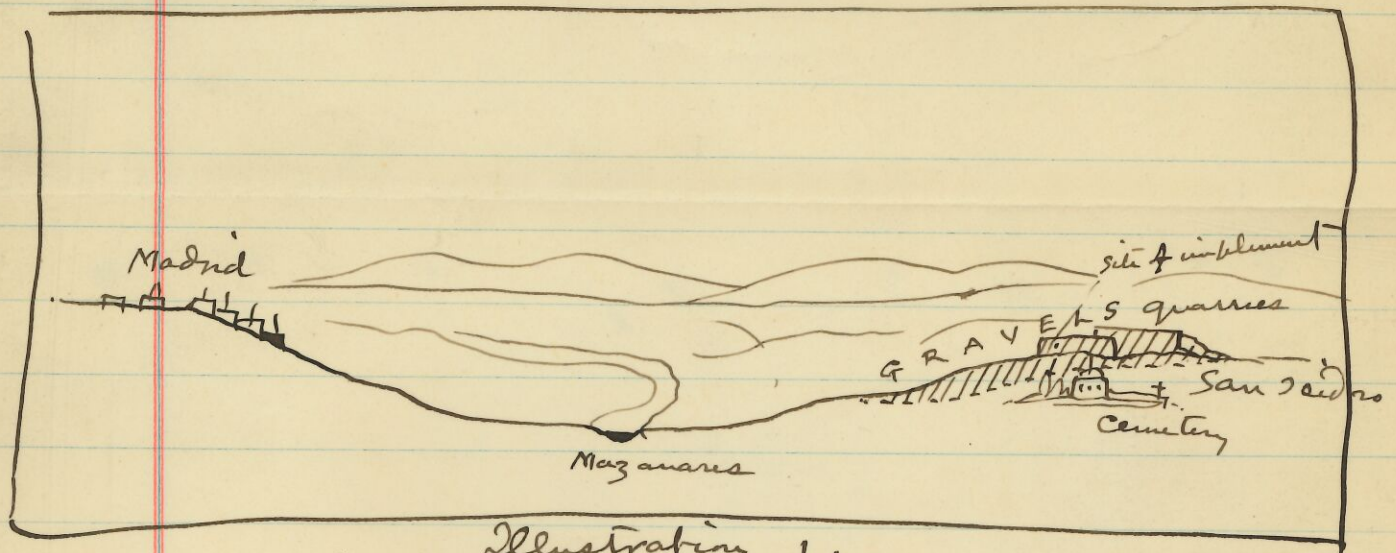 Madrid
site of implement
GRAVELS quarries
San Isidro
Cemetery
Mazanares
Illustration 1.